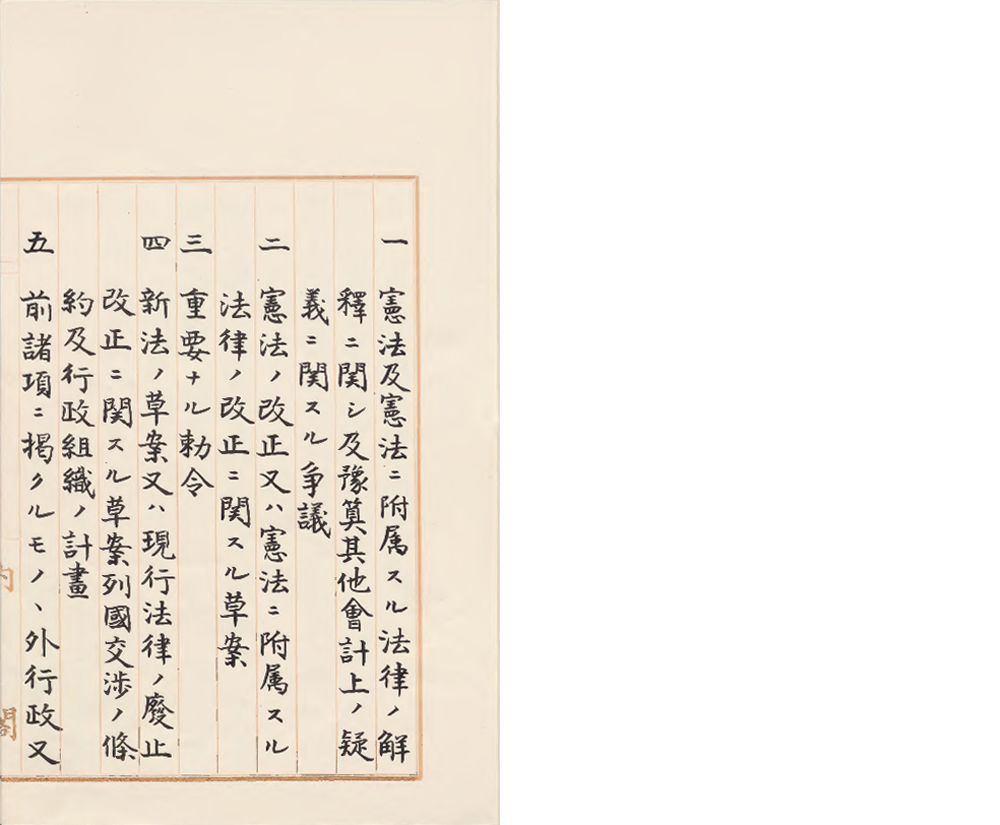 一 憲法及憲法ニ附属スル法律ノ解
釋ニ関シ及豫算其他會計上ノ疑
義ニ関スル爭議
二 憲法ノ改正又ハ憲法ニ附属スル
法律ノ改正ニ関スル草案
三 重要ナル勅令
四 新法ノ草案又ハ現行法律ノ廢止
改正ニ関スル草案列國交渉ノ條
約及行政組織ノ計畫
五 前諸項ニ掲クルモノヽ外行政又
内閣